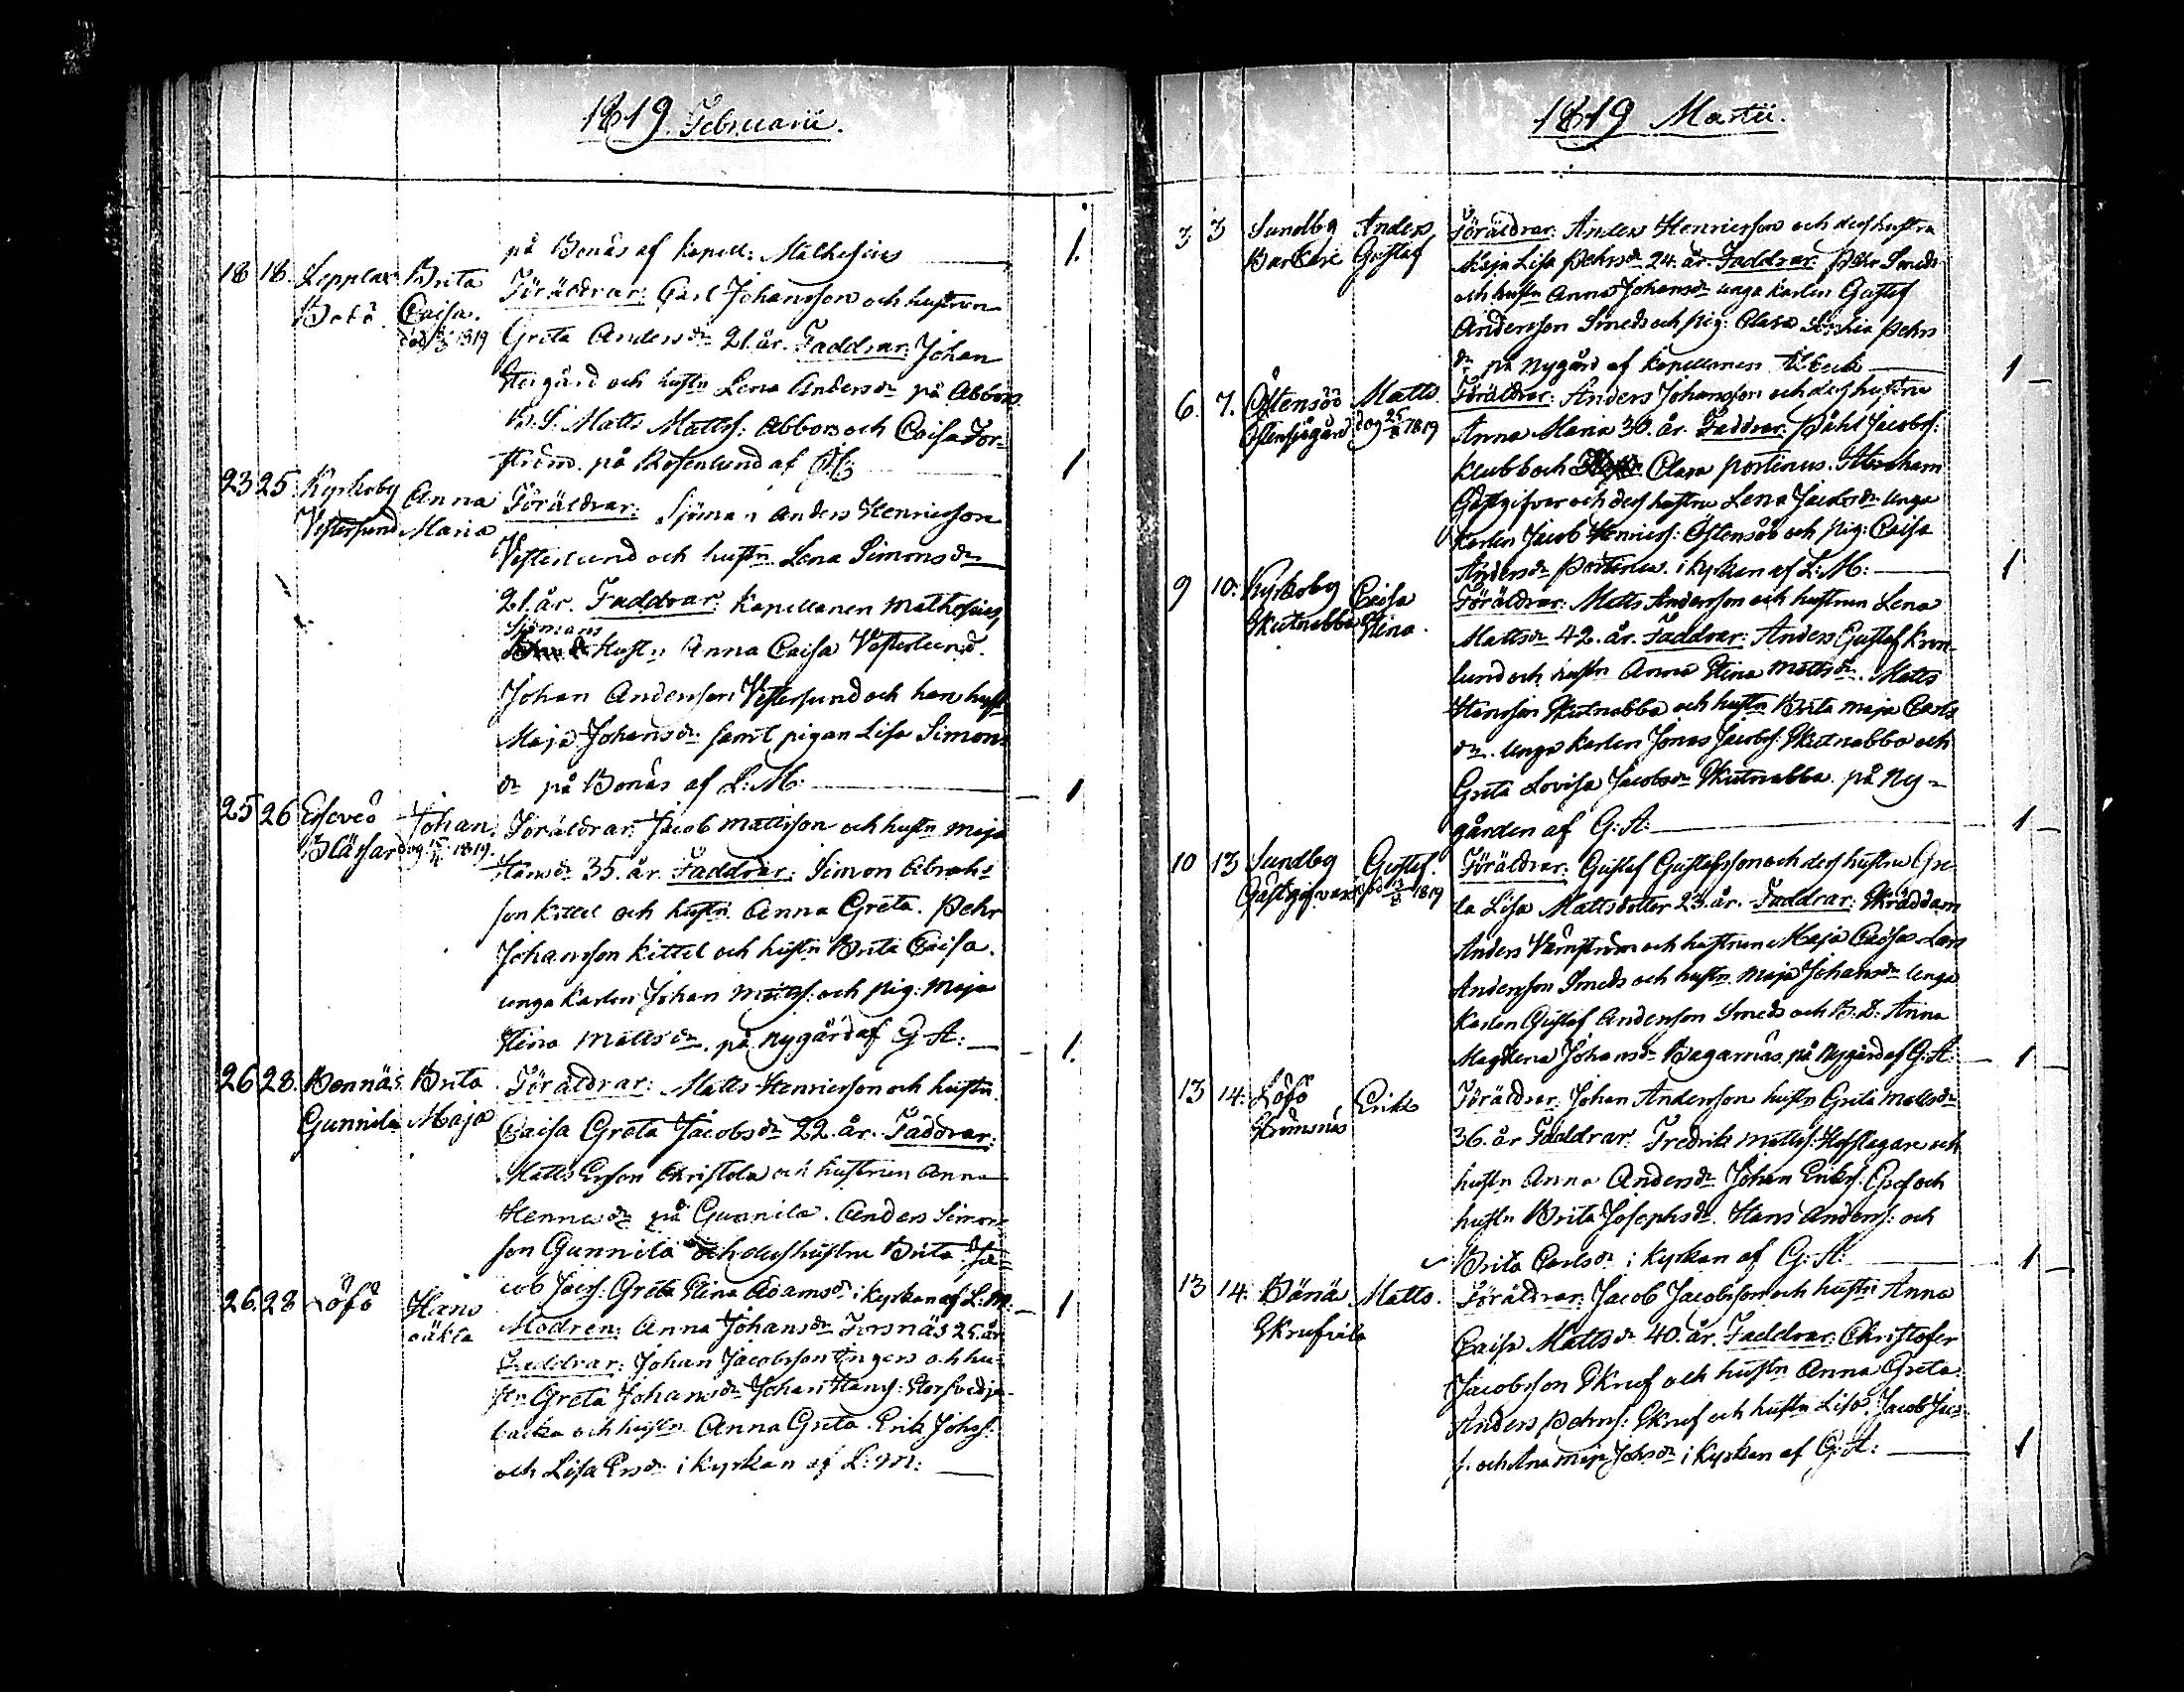 1819 Februarii.
på Bonäs af Kapell: Mathesius 1.
18 18. Lepplax Brita Föräldrar: Carl Johansson och hustrun
Botö. Caisa. Greta Andersdr 21. år. Faddrar: Johan
död 1819
Stergård och hustn Lena Andersdr på Abbors
B. S. Matts Mattss: Abbors och Caisa For-
ström. på Rosenlund af 1
23 25. Kyrkoby Anna Föräldrar: Sjöman Anders Henricsson
Vestersund Maria Vesterlund och hustn Lena Simonsdr
21. år. Faddrar: Kapellanen Mathesius,
Sjömans
Hustn Anna Caisa Vesterlund.
Johan Andersson Vestersund och hans hust
Maja Johansdr samt pigan Lisa Simons
dr på Bonäs af L: M: 1
25 26 Esseveö Johan. Föräldrar: Jacob Mattsson och hustn Maja
Blässar dog 1819. Hansdr 35. år. Faddrar: Simon Abrah-
son Kittel och hustn Anna Greta. Pehr
Johansson Kittel och hustn Brita Caisa.
unga Karlen Johan Mattss: och pig: Maja
Stina Mattsdr. på Nygård af G. A: 1.
26 28. Bennäs Brita Föräldrar: Matts Henricsson och hustn
Gunnila Maja Caisa Greta Jacobsdr 22. år. Faddrar:
Matts Ersson Christola och hustrun Anna
Henricsdr på Gunnila. Anders Simon-
son Gunnila och dess hustru Brita Ja-
cob Jacs: Greta Stina Adamsdr i Kyrkan af L: M: 1
26. 28 Löfö Hans Modren: Anna Johansdr Forsnäs 25. år
oäkta Faddrar: Johan Jacobsson Ingers och hu-
stn Greta Johansdr Johan Hanss: Storsvedje-
backa och hustn Anna Greta. Erik Johss:
och Lisa Ersdr i Kyrkan af L: M:
1819 Martii.
3 3 Sundby Anders Föräldrar: Anders Henricsson och dess hustru
Barkare Gustaf Maja Lisa Pehrsdr 24. år. Faddrar: Pehr Smeds
och hustn Anna Johansdr unga Karlen Gustaf
Andersson Smeds och pig: Clara Sophia Pehrs
dr på Nygård af Kapellanen 1
6. 7. Östensöö Matts. Föräldrar: Anders Johansson och dess hustru
Östensjögård dog 25/8 1819 Anna Maria 30. år. Faddrar: Påhl Jacobss:
Klubb och Clara Portinus. Abraham
Gästgifvar och dess hustru Lena Jacobsdr unga
Karlen Jacob Henricss: Östensöö och pig: Caisa
Andersdr Portinus. i Kyrkan af L: M: 1
9 10: Kyrkoby Caisa Föräldrar: Matts Andersson och hustrun Lena
Skutnabba Stina. Mattsdr 42. år. Faddrar: Anders Gustaf Kron-
lund och hustn Anna Stina Mattsdr. Matts
Hansson Skutnabba och hustn Brita Maja Carls
dr. unga Karlen Jonas Jacobss: Skutnabba och
Greta Lovisa Jacobsdr Skutnabba. på Ny-
gården af G: A: 1
10 13 Sundby Gustaf. Föräldrar: Gustaf Gustafsson och dess hustru Gre-
Gästgifvars död 1819 ta Lisa Mattsdotter 23. år. Faddrar: Skräddarn
Anders Vänström och hustrun Maja Caisa. Lars
Andersson Smeds och hustn Maja Johansdr unga
Karlen Gustaf Andersson Smeds och B. D: Anna
Magdlena Johansdr Bagarnäs, på Nygård af G: A: 1
13 14: Löfö Erik Föräldrar: Johan Andersson hustn Greta Mattsdr
Strömsnäs 36. år Faddrar: Fredrik Mattss: Hofslagare och
hustn Anna Andersdr Johan Erikss: Gref och
hustn Brita Josephsdr. Hans Anderss: och
Brita Carlsdr i Kyrkan af G: A: 1
13 14: Bänä Matts. Föräldrar: Jacob Jacobsson och hustn Anna
Skrufvila Caisa Mattsdr 40. år. Faddrar: Christofer
Jacobsson Skruf och hustn Anna Greta.
Anders Pehrs: Skruf och hustn Lisa. Jacob Jac-
s. och Ana Maja Johsdr i Kyrkan af G: A: 1